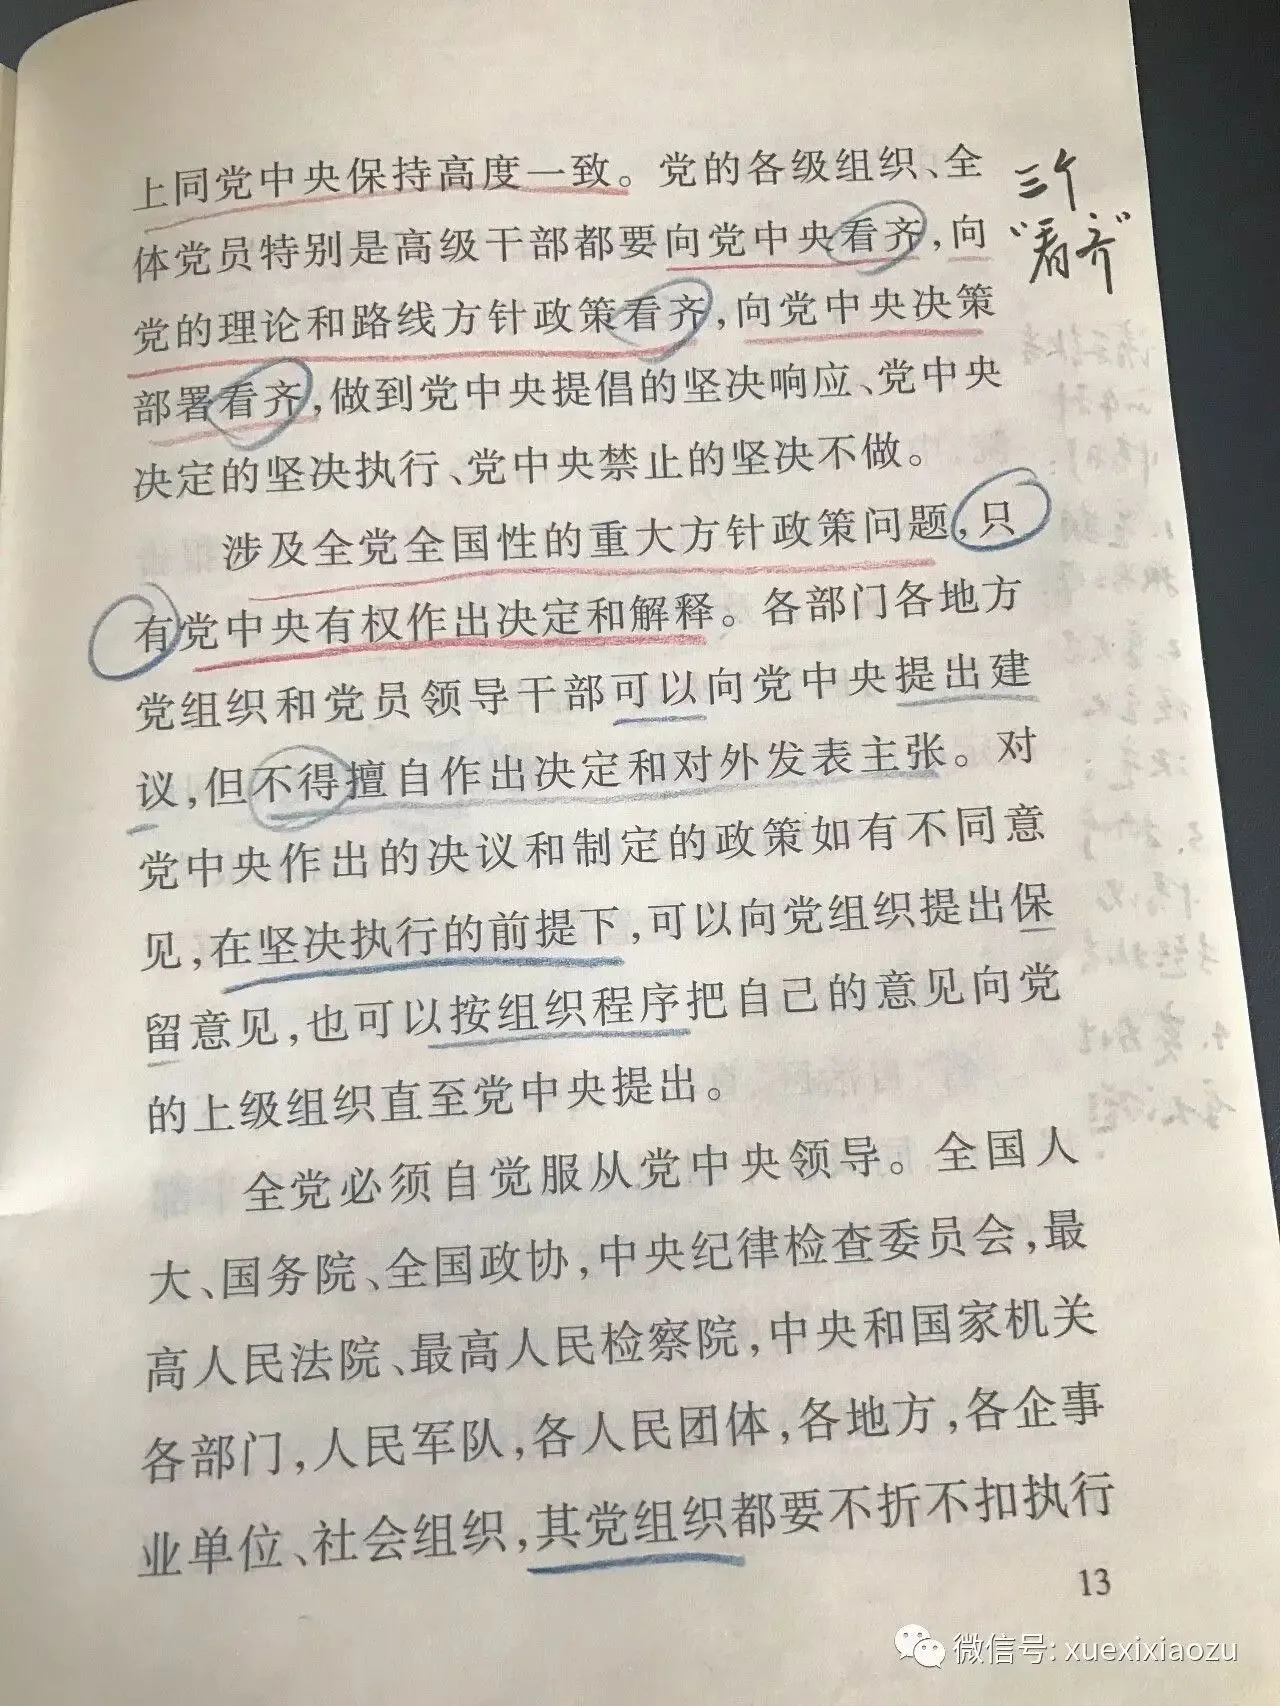 上同党中央保持高度一致。党的各级组织、全
体党员特别是高级干部都要向党中央看齐，向
党的理论和路线方针政策看齐，向党中央决策
部署看齐，做到党中央提倡的坚决响应、党中央
决定的坚决执行、党中央禁止的坚决不做。
涉及全党全国性的重大方针政策问题，只
有党中央有权作出决定和解释。各部门各地方
党组织和党员领导干部可以向党中央提出建
议，但不得擅自作出决定和对外发表主张。对
党中央作出的决议和制定的政策如有不同意
见，在坚决执行的前提下，可以向党组织提出保
留意见，也可以按组织程序把自己的意见向党
的上级组织直至党中央提出。
全党必须自觉服从党中央领导。全国人
大、国务院、全国政协，中央纪律检查委员会，最
高人民法院、最高人民检察院，中央和国家机关
各部门，人民军队，各人民团体，各地方，各企事
业单位、社会组织，其党组织都要不折不扣执行
13
三个
“看齐”
微信号: xuexixiaozu